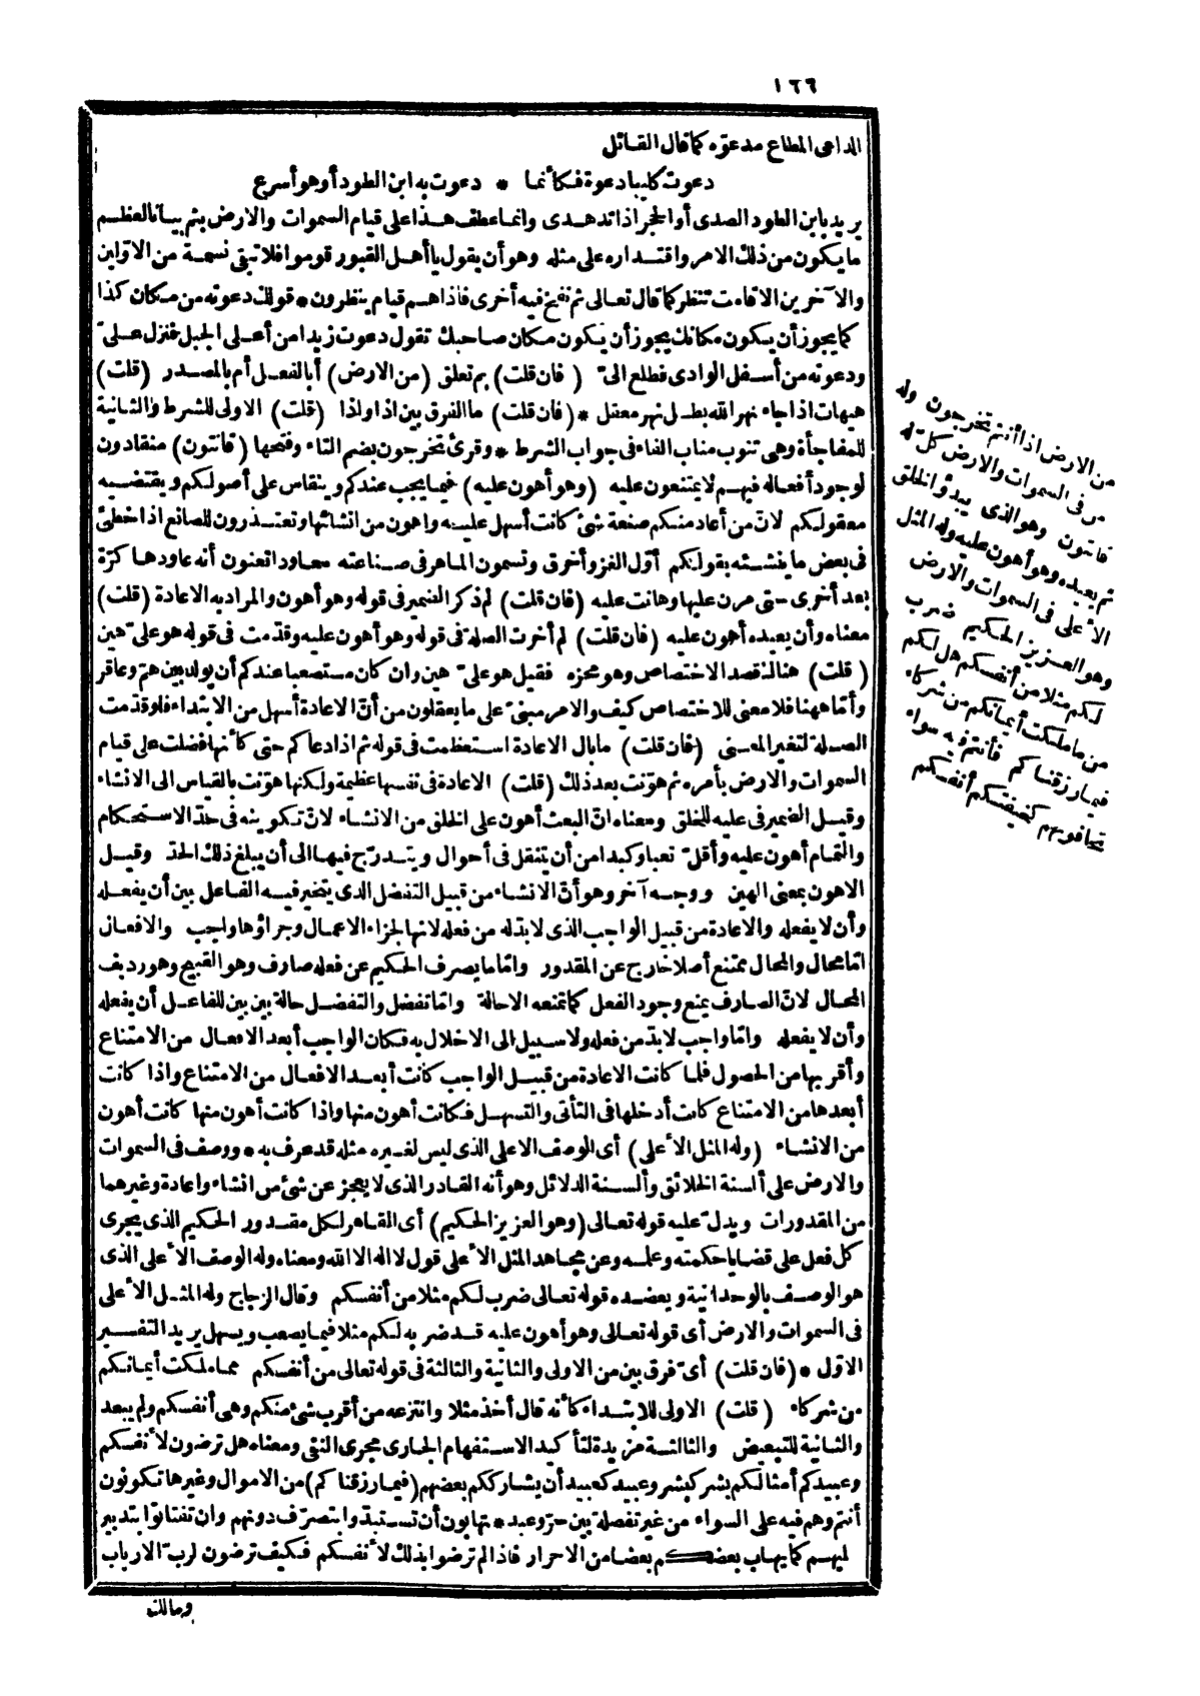 ١٦٦
الداعى المطاع مدعوّه كما قال القائل
دعوت كليبا دعوة فكأنما * دعوت به ابن الطود أو هو أسرع
يريد بابن الطود الصدى أو الحجر اذا تدهدى وانما عطف هذا على قيام السموات والارض بثم بيانا لعظم
ما يكون من ذلك الامر واقتداره على مثله وهو أن يقول يا أهل القبور قوموا فلا تبقى نسمة من الاوّلين
والآخرين الا قامت تنظر كما قال تعالى ثم نفخ فيه أخرى فاذا هم قيام ينظرون * قولك دعوته من مكان كذا
كما يجوز أن يكون مكانك يجوز أن يكون مكان صاحبك تقول دعوت زيدا من أعلى الجبل فنزل علىّ
ودعوته من أسفل الوادى فطلع الىّ (فان قلت) بم تعلق (من الارض) أبالفعل أم بالمصدر (قلت)
هيهات اذا جاء نهر الله بطل نهر معقل * (فان قلت) ما الفرق بين اذا واذا (قلت) الاولى للشرط والثانية
للمفاجأة وهى تنوب مناب الفاء فى جواب الشرط * وقرئ تخرجون بضم التاء وفتحها (قانتون) منقادون
لوجود أفعاله فيهم لا يمتنعون عليه (وهو أهون عليه) فيما يجب عندكم وينقاس على أصولكم ويقتضيه
معقولكم لانّ من أعاد منكم صنعة شئ كانت أسهل عليه واهون من انشائها وتعتذرون للصانع اذا خطئ
فى بعض ما ينشئه بقولكم أوّل الغزو أخرق وتسمون الماهر فى صناعته معاودا تعنون أنه عاودها كرّة
بعد أخرى حتى مرن عليها وهانت عليه (فان قلت) لم ذكر الضمير فى قوله وهو أهون والمراد به الاعادة (قلت)
معناه وأن يعيده أهون عليه (فان قلت) لم أخرت الصلة فى قوله وهو أهون عليه وقدّمت فى قوله هو علىّ هين
(قلت) هنالك قصد الاختصاص وهو محزه فقيل هو علىّ هين وان كان مستصعبا عندكم أن يولد بين همّ وعاقر
وأمّا ههنا فلا معنى للاختصاص كيف والامر مبنىّ على ما يعقلون من أنّ الاعادة أسهل من الابتداء فلو قدّمت
الصلة لتغير المعنى (فان قلت) ما بال الاعادة استعظمت فى قوله ثم اذا دعاكم حتى كأنها فضلت على قيام
السموات والارض بأمره ثم هوّنت بعد ذلك (قلت) الاعادة فى نفسها عظيمة ولكنها هوّنت بالقياس الى الانشاء
وقيل الضمير فى عليه للخلق ومعناه انّ البعث أهون على الخلق من الانشاء لانّ تكوينه فى حدّ الاستحكام
والتمام أهون عليه وأقلّ تعبا وكبدا من أن يتنقل فى أحوال ويتدرّج فيها الى أن يبلغ ذلك الحدّ وقيل
الاهون بمعنى الهين ووجه آخر وهو أنّ الانشاء من قبيل التفضل الذى يتخير فيه الفاعل بين أن يفعله
وأن لا يفعله والاعادة من قبيل الواجب الذى لا بدّ له من فعله لانها لجزاء الاعمال وجزاؤها واجب والافعال
امّا محال والمحال ممتنع أصلا خارج عن المقدور وامّا ما يصرف الحكيم عن فعله صارف وهو القبيح وهو رديف
المحال لانّ الصارف يمنع وجود الفعل كما تمنعه الاحالة وامّا تفضل والتفضل حالة بين بين للفاعل أن يفعله
وأن لا يفعله وامّا واجب لا بدّ من فعله ولا سبيل الى الاخلال به فكان الواجب أبعد الافعال من الامتناع
وأقربها من الحصول فلما كانت الاعادة من قبيل الواجب كانت أبعد الافعال من الامتناع واذا كانت
أبعدها من الامتناع كانت أدخلها فى التأتى والتسهل فكانت أهون منها واذا كانت أهون منها كانت أهون
من الانشاء (وله المثل الأعلى) أى الوصف الاعلى الذى ليس لغيره مثله قد عرف به * ووصف فى السموات
والارض على ألسنة الخلائق وألسنة الدلائل وهو أنه القادر الذى لا يعجز عن شئ من انشاء واعادة وغيرهما
من المقدورات ويدلّ عليه قوله تعالى (وهو العزيز الحكيم) أى القاهر لكل مقدور الحكيم الذى يجرى
كل فعل على قضايا حكمته وعلمه وعن مجاهد المثل الأعلى قول لا اله الا الله ومعناه وله الوصف الأعلى الذى
هو الوصف بالوحدانية ويعضده قوله تعالى ضرب لكم مثلا من أنفسكم وقال الزجاج وله المثل الأعلى
فى السموات والارض أى قوله تعالى وهو أهون عليه قد ضربه لكم مثلا فيما يصعب ويسهل يريد التفسير
الاوّل * (فان قلت) أىّ فرق بين من الاولى والثانية والثالثة فى قوله تعالى من أنفسكم مما ملكت أيمانكم
من شركاء (قلت) الاولى للابتداء كأنه قال أخذ مثلا وانتزعه من أقرب شئ منكم وهى أنفسكم ولم يبعد
والثانية للتبعيض والثالثة مزيدة لتأكيد الاستفهام الجارى مجرى النفى ومعناه هل ترضون لأنفسكم
وعبيدكم أمثالكم بشر كبشر وعبيد كعبيد أن يشارككم بعضهم (فيما رزقناكم) من الاموال وغيرها تكونون
أنتم وهم فيه على السواء من غير تفصلة بين حرّ وعبد * تهابون أن تستبدّوا بتصرّف دونهم وان تفتاتوا بتدبير
عليهم كما يهاب بعضكم بعضا من الاحرار فاذا لم ترضوا بذلك لأنفسكم فكيف ترضون لربّ الارباب
ومالك
من الارض اذا أنتم تخرجون وله
من فى السموات والارض كلّ له
قانتون وهو الذى يبدؤ الخلق
ثم يعيده وهو أهون عليه وله المثل
الأعلى فى السموات والارض
وهو العزيز الحكيم ضرب
لكم مثلا من أنفسكم هل لكم
من ما ملكت أيمانكم من شركاء
فيما رزقناكم فأنتم فيه سواء
تخافونهم كخيفتكم أنفسكم